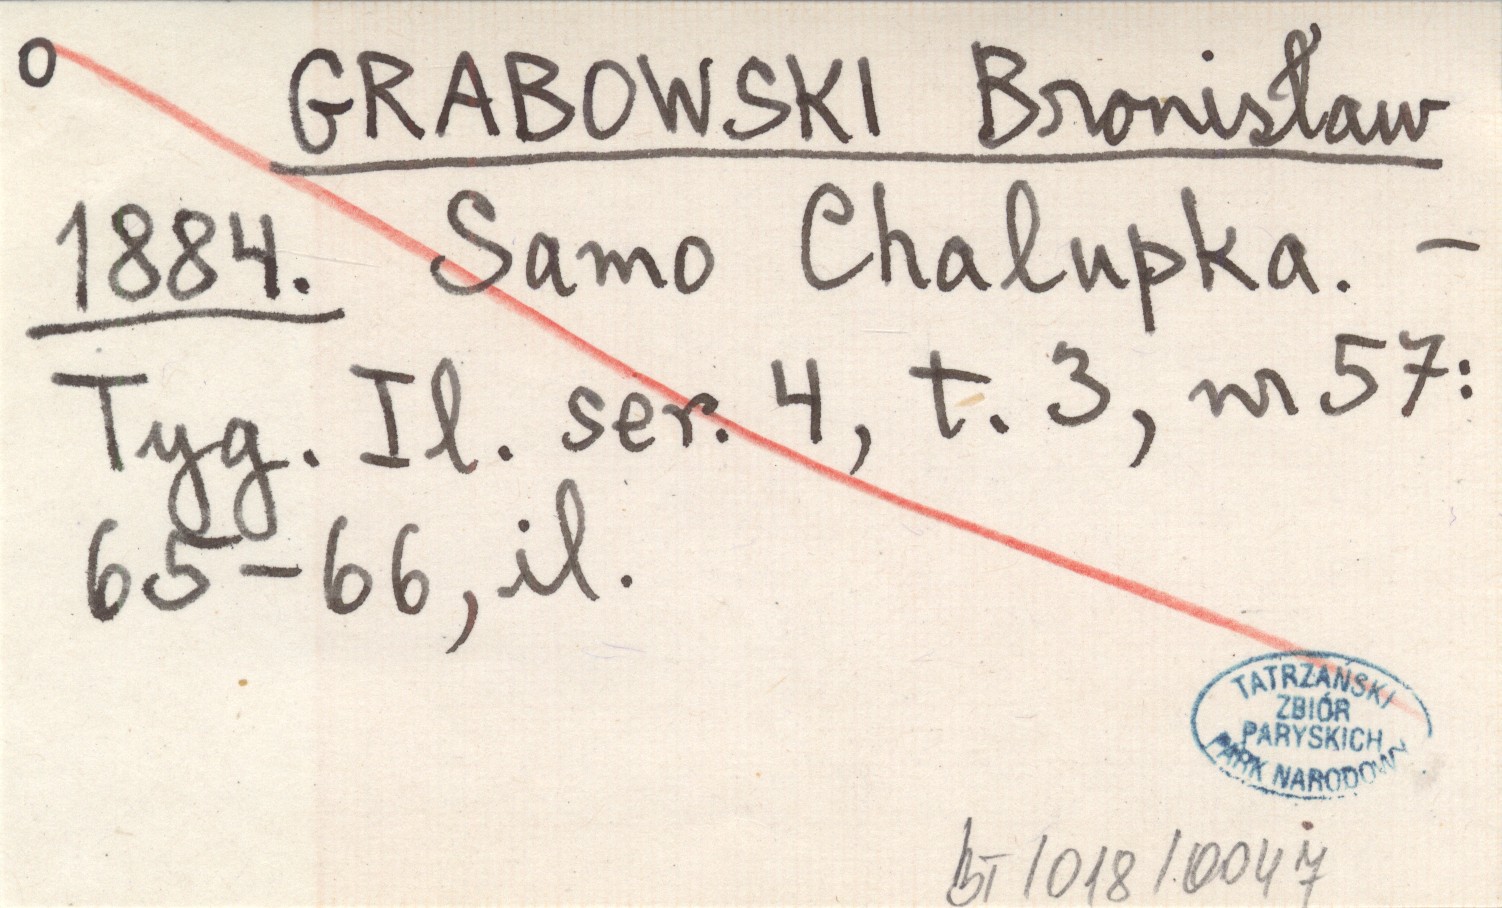 o
GRABOWSKI Bronisław
1884. Samo Chalupka. –
Tyg. Il. ser. 4, t. 3, nr 57:
65–66, il.
TATRZAŃSKI
ZBIÓR
PARYSKICH
PARK NARODOWY
BT/018/0047